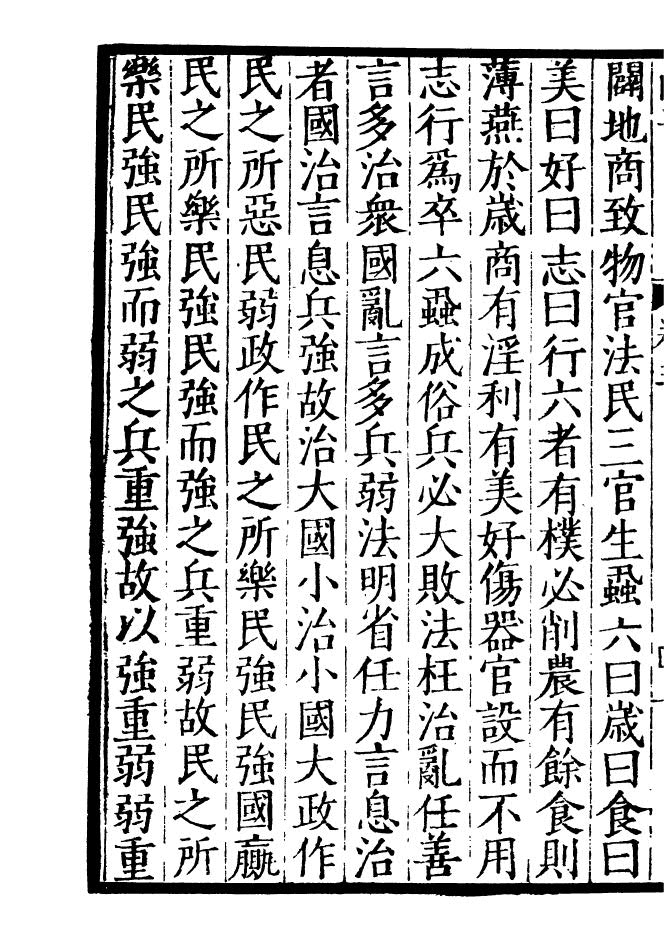 闢地商致物官法民三官生蝨六曰歲曰食曰
美曰好曰志曰行六者有樸必削農有餘食則
薄燕於歲商有淫利有美好傷器官設而不用
志行爲卒六蝨成俗兵必大敗法枉治亂任善
言多治衆國亂言多兵弱法明省任力言息治
者國治言息兵強故治大國小治小國大政作
民之所惡民弱政作民之所樂民強民強國羸
民之所樂民強民強而強之兵重弱故民之所
樂民強民強而弱之兵重強故以強重弱弱重